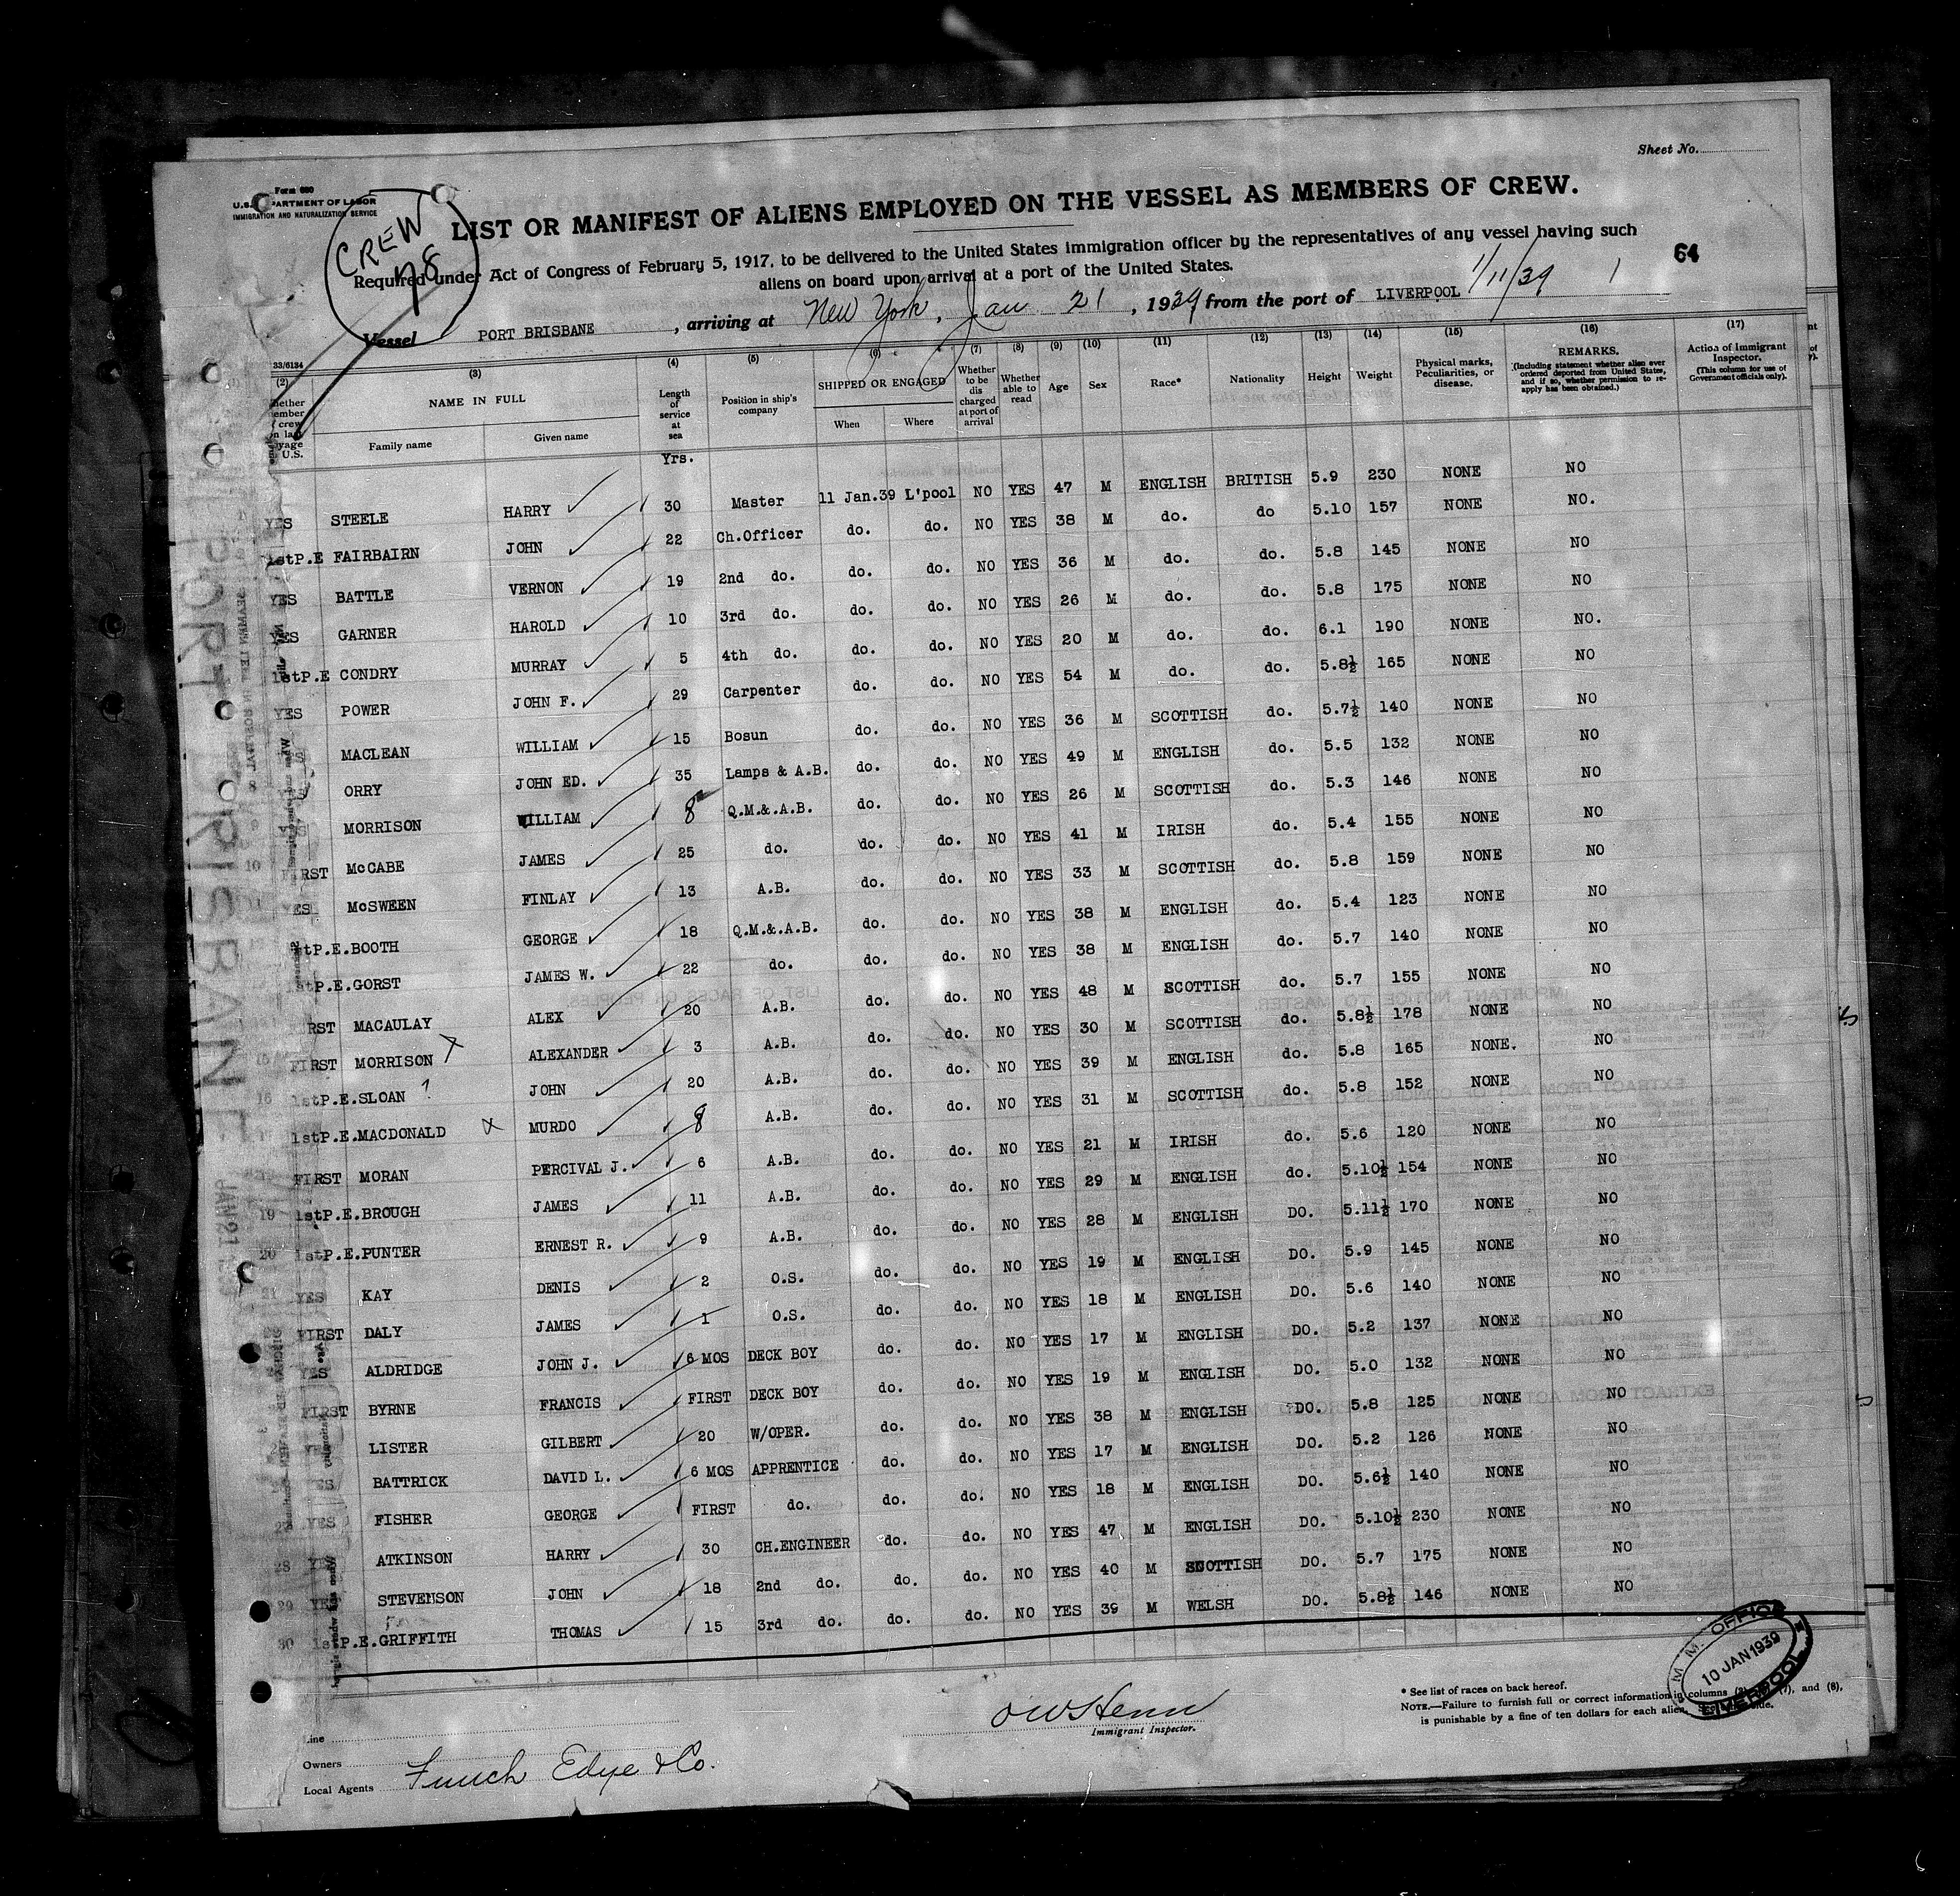 Sheet No.
Form 680
U.S. DEPARTMENT OF LABOR
IMMIGRATION AND NATURALIZATION SERVICE
CREW
78
LIST OR MANIFEST OF ALIENS EMPLOYED ON THE VESSEL AS MEMBERS OF CREW.
Required under Act of Congress of February 5, 1917, to be delivered to the United States immigration officer by the representatives of any vessel having such
aliens on board upon arrival at a port of the United States.
64
1/11/39 1
Vessel PORT BRISBANE, arriving at New York, Jan 21, 1939 from the port of LIVERPOOL
33/6134
(2) (3) (4) (5) (6) (7) (8) (9) (10) (11) (12) (13) (14) (15) (16) (17)
NAME IN FULL Length of service at sea Position in ship's company SHIPPED OR ENGAGED Whether to be discharged at port of arrival Whether able to read Age Sex Race* Nationality Height Weight Physical marks, Peculiarities, or disease. REMARKS. (Including statement whether alien ever ordered deported from United States, and if so, whether permission to re-apply has been obtained.) Action of Immigrant Inspector. (This column for use of Government officials only).
Family name Given name When Where
Yrs.
YES STEELE HARRY 30 Master 11 Jan.39 L'pool NO YES 47 M ENGLISH BRITISH 5.9 230 NONE NO
1stP.E FAIRBAIRN JOHN 22 Ch.Officer do. do. NO YES 38 M do. do 5.10 157 NONE NO.
YES BATTLE VERNON 19 2nd do. do. do. NO YES 36 M do. do. 5.8 145 NONE NO
YES GARNER HAROLD 10 3rd do. do. do. NO YES 26 M do. do. 5.8 175 NONE NO
1stP.E CONDRY MURRAY 5 4th do. do. do. NO YES 20 M do. do. 6.1 190 NONE NO.
YES POWER JOHN F. 29 Carpenter do. do. NO YES 54 M do. do. 5.8½ 165 NONE NO
MACLEAN WILLIAM 15 Bosun do. do. NO YES 36 M SCOTTISH do. 5.7½ 140 NONE NO
ORRY JOHN ED. 35 Lamps & A.B. do. do. NO YES 49 M ENGLISH do. 5.5 132 NONE NO
MORRISON WILLIAM 8 Q.M.&.A.B. do. do. NO YES 26 M SCOTTISH do. 5.3 146 NONE NO
10 FIRST McCABE JAMES 25 do. do. do. NO YES 41 M IRISH do. 5.4 155 NONE NO
YES McSWEEN FINLAY 13 A.B. do. do. NO YES 33 M SCOTTISH do. 5.8 159 NONE NO
1stP.E.BOOTH GEORGE 18 Q.M.&.A.B. do. do. NO YES 38 M ENGLISH do. 5.4 123 NONE NO
1stP.E.GORST JAMES W. 22 do. do. do. NO YES 38 M ENGLISH do. 5.7 140 NONE NO
FIRST MACAULAY ALEX 20 A.B. do. do. NO YES 48 M SCOTTISH do. 5.7 155 NONE NO
15 FIRST MORRISON ALEXANDER 3 A.B. do. do. NO YES 30 M SCOTTISH do. 5.8½ 178 NONE NO
16 1stP.E.SLOAN ? JOHN 20 A.B. do. do. NO YES 39 M ENGLISH do. 5.8 165 NONE. NO
1stP.E.MACDONALD x MURDO 8 A.B. do. do. NO YES 31 M SCOTTISH do. 5.8 152 NONE NO
FIRST MORAN PERCIVAL J. 6 A.B. do. do. NO YES 21 M IRISH do. 5.6 120 NONE NO
19 1stP.E.BROUGH JAMES 11 A.B. do. do. NO YES 29 M ENGLISH do. 5.10½ 154 NONE NO
20 1stP.E.PUNTER ERNEST R. 9 A.B. do. do. NO YES 28 M ENGLISH DO. 5.11½ 170 NONE NO
21 YES KAY DENIS 2 O.S. do. do. NO YES 19 M ENGLISH DO. 5.9 145 NONE NO
FIRST DALY JAMES 1 O.S. do. do. NO YES 18 M ENGLISH DO. 5.6 140 NONE NO
YES ALDRIDGE JOHN J. 6 MOS DECK BOY do. do. NO YES 17 M ENGLISH DO. 5.2 137 NONE NO
FIRST BYRNE FRANCIS FIRST DECK BOY do. do. NO YES 19 M ENGLISH DO. 5.0 132 NONE NO
LISTER GILBERT 20 W/OPER. do. do. NO YES 38 M ENGLISH DO. 5.8 125 NONE NO
YES BATTRICK DAVID L. 6 MOS APPRENTICE do. do. NO YES 17 M ENGLISH DO. 5.2 126 NONE NO
YES FISHER GEORGE FIRST do. do. do. NO YES 18 M ENGLISH DO. 5.6½ 140 NONE NO
28 YES ATKINSON HARRY 30 CH.ENGINEER do. do. NO YES 47 M ENGLISH DO. 5.10½ 230 NONE NO
29 YES STEVENSON JOHN 18 2nd do. do. do. NO YES 40 M SCOTTISH DO. 5.7 175 NONE NO
30 1stP.E.GRIFFITH THOMAS 15 3rd do. do. do. NO YES 39 M WELSH DO. 5.8½ 146 NONE NO
M.M. OFFICE
10 JAN 1939
LIVERPOOL
Line
Owners
Local Agents Funch Edye & Co.
Immigrant Inspector.
* See list of races on back hereof.
NOTE.—Failure to furnish full or correct information in columns (2), (7), and (8),
is punishable by a fine of ten dollars for each alien.